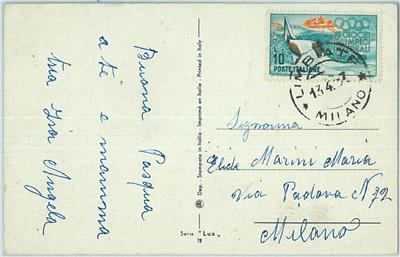 Buona Pasqua
a te e mamma
tua Zia Angela
Dep. - Stampato in Italia - Imprimé en Italie - Printed in Italy
Serie "Lux"
78
GIOCHI
OLIMPICI
10 POSTE ITALIANE
LIMBIATE
13.4.57
* MILANO *
Signorina
Elide Marini Maria
Via Padova N 72
Milano